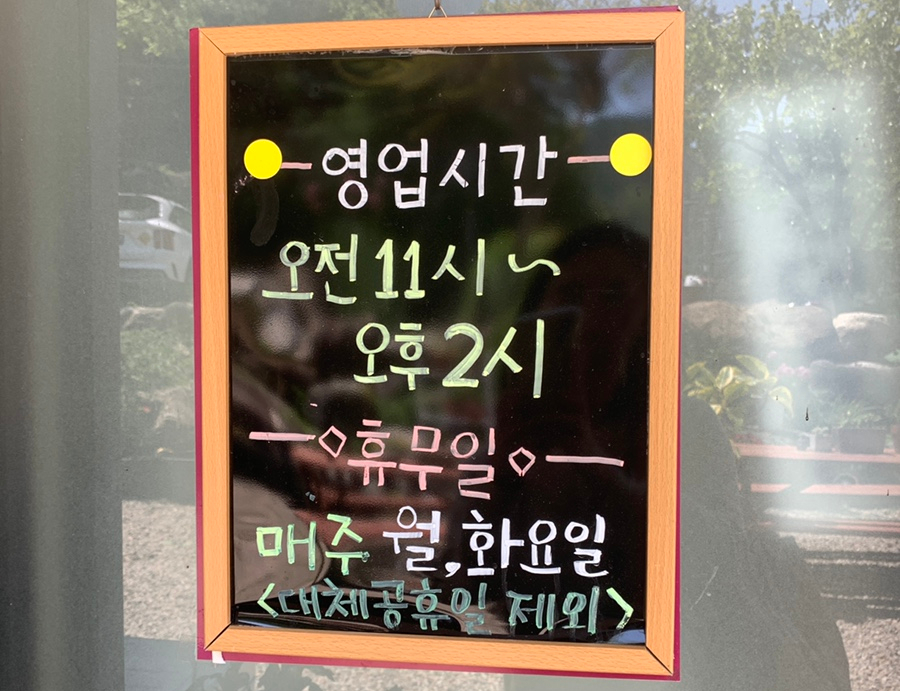 영업시간
오전 11시 ~
오후 2시
휴무일
매주 월,화요일
<대체공휴일 제외>